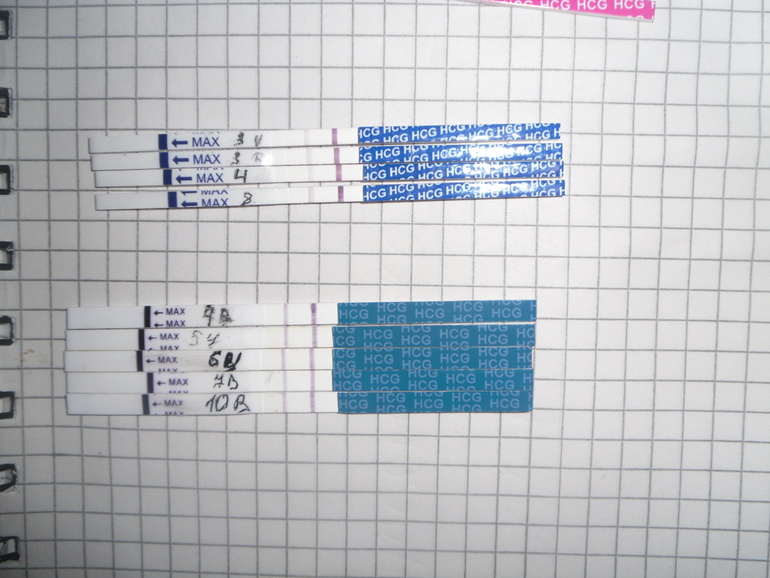 HCG HCG HCG
HCG HCG HCG HCG HCG HCG
← MAX 3 У HCG HCG HCG HCG HCG HCG
← MAX 3 HCG HCG HCG HCG HCG HCG
← MAX 4 HCG HCG HCG HCG HCG HCG
← MAX 8 HCG HCG HCG HCG HCG HCG
← MAX HCG HCG HCG HCG
← MAX HCG HCG HCG
← MAX 5 У HCG HCG HCG HCG
← MAX 6 HCG HCG HCG HCG
← MAX 7 В HCG HCG HCG HCG
← MAX 10 В HCG HCG HCG HCG